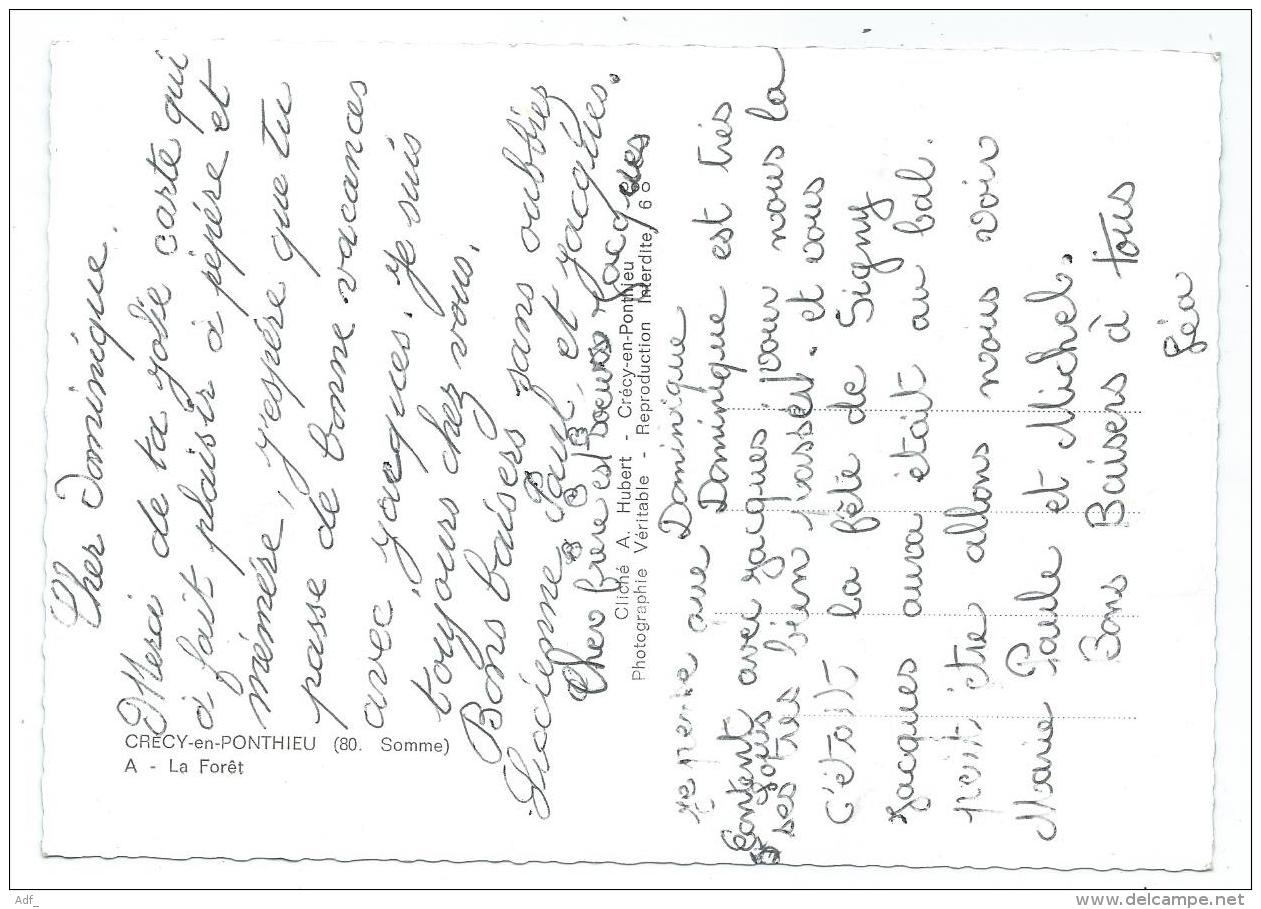 Cher Dominique.
Merci de ta jolie carte qui
à fait plaisir à pépère et
mémère, j'espère que tu
passe de bonne vacances
avec jacques. Je suis
toujours chez vous.
Bons baisers sans oublier
Lucienne Paul, et jacques.
Cher frere et soeurs Jacques
je pense avec Dominique
Dominique est tres
content avec jacques pour nous la
ses tres bien passé et vous
C'était la fête de Signy
Jacques aura était au bal.
peut être allons nous voir
Marie Paule et Michel.
Bons Baisers à tous
Léa
CRÉCY-en-PONTHIEU (80. Somme)
A - La Forêt
Cliché A. Hubert - Crécy-en-Ponthieu
Photographie Véritable - Reproduction Interdite
Adf_
www.delcampe.net